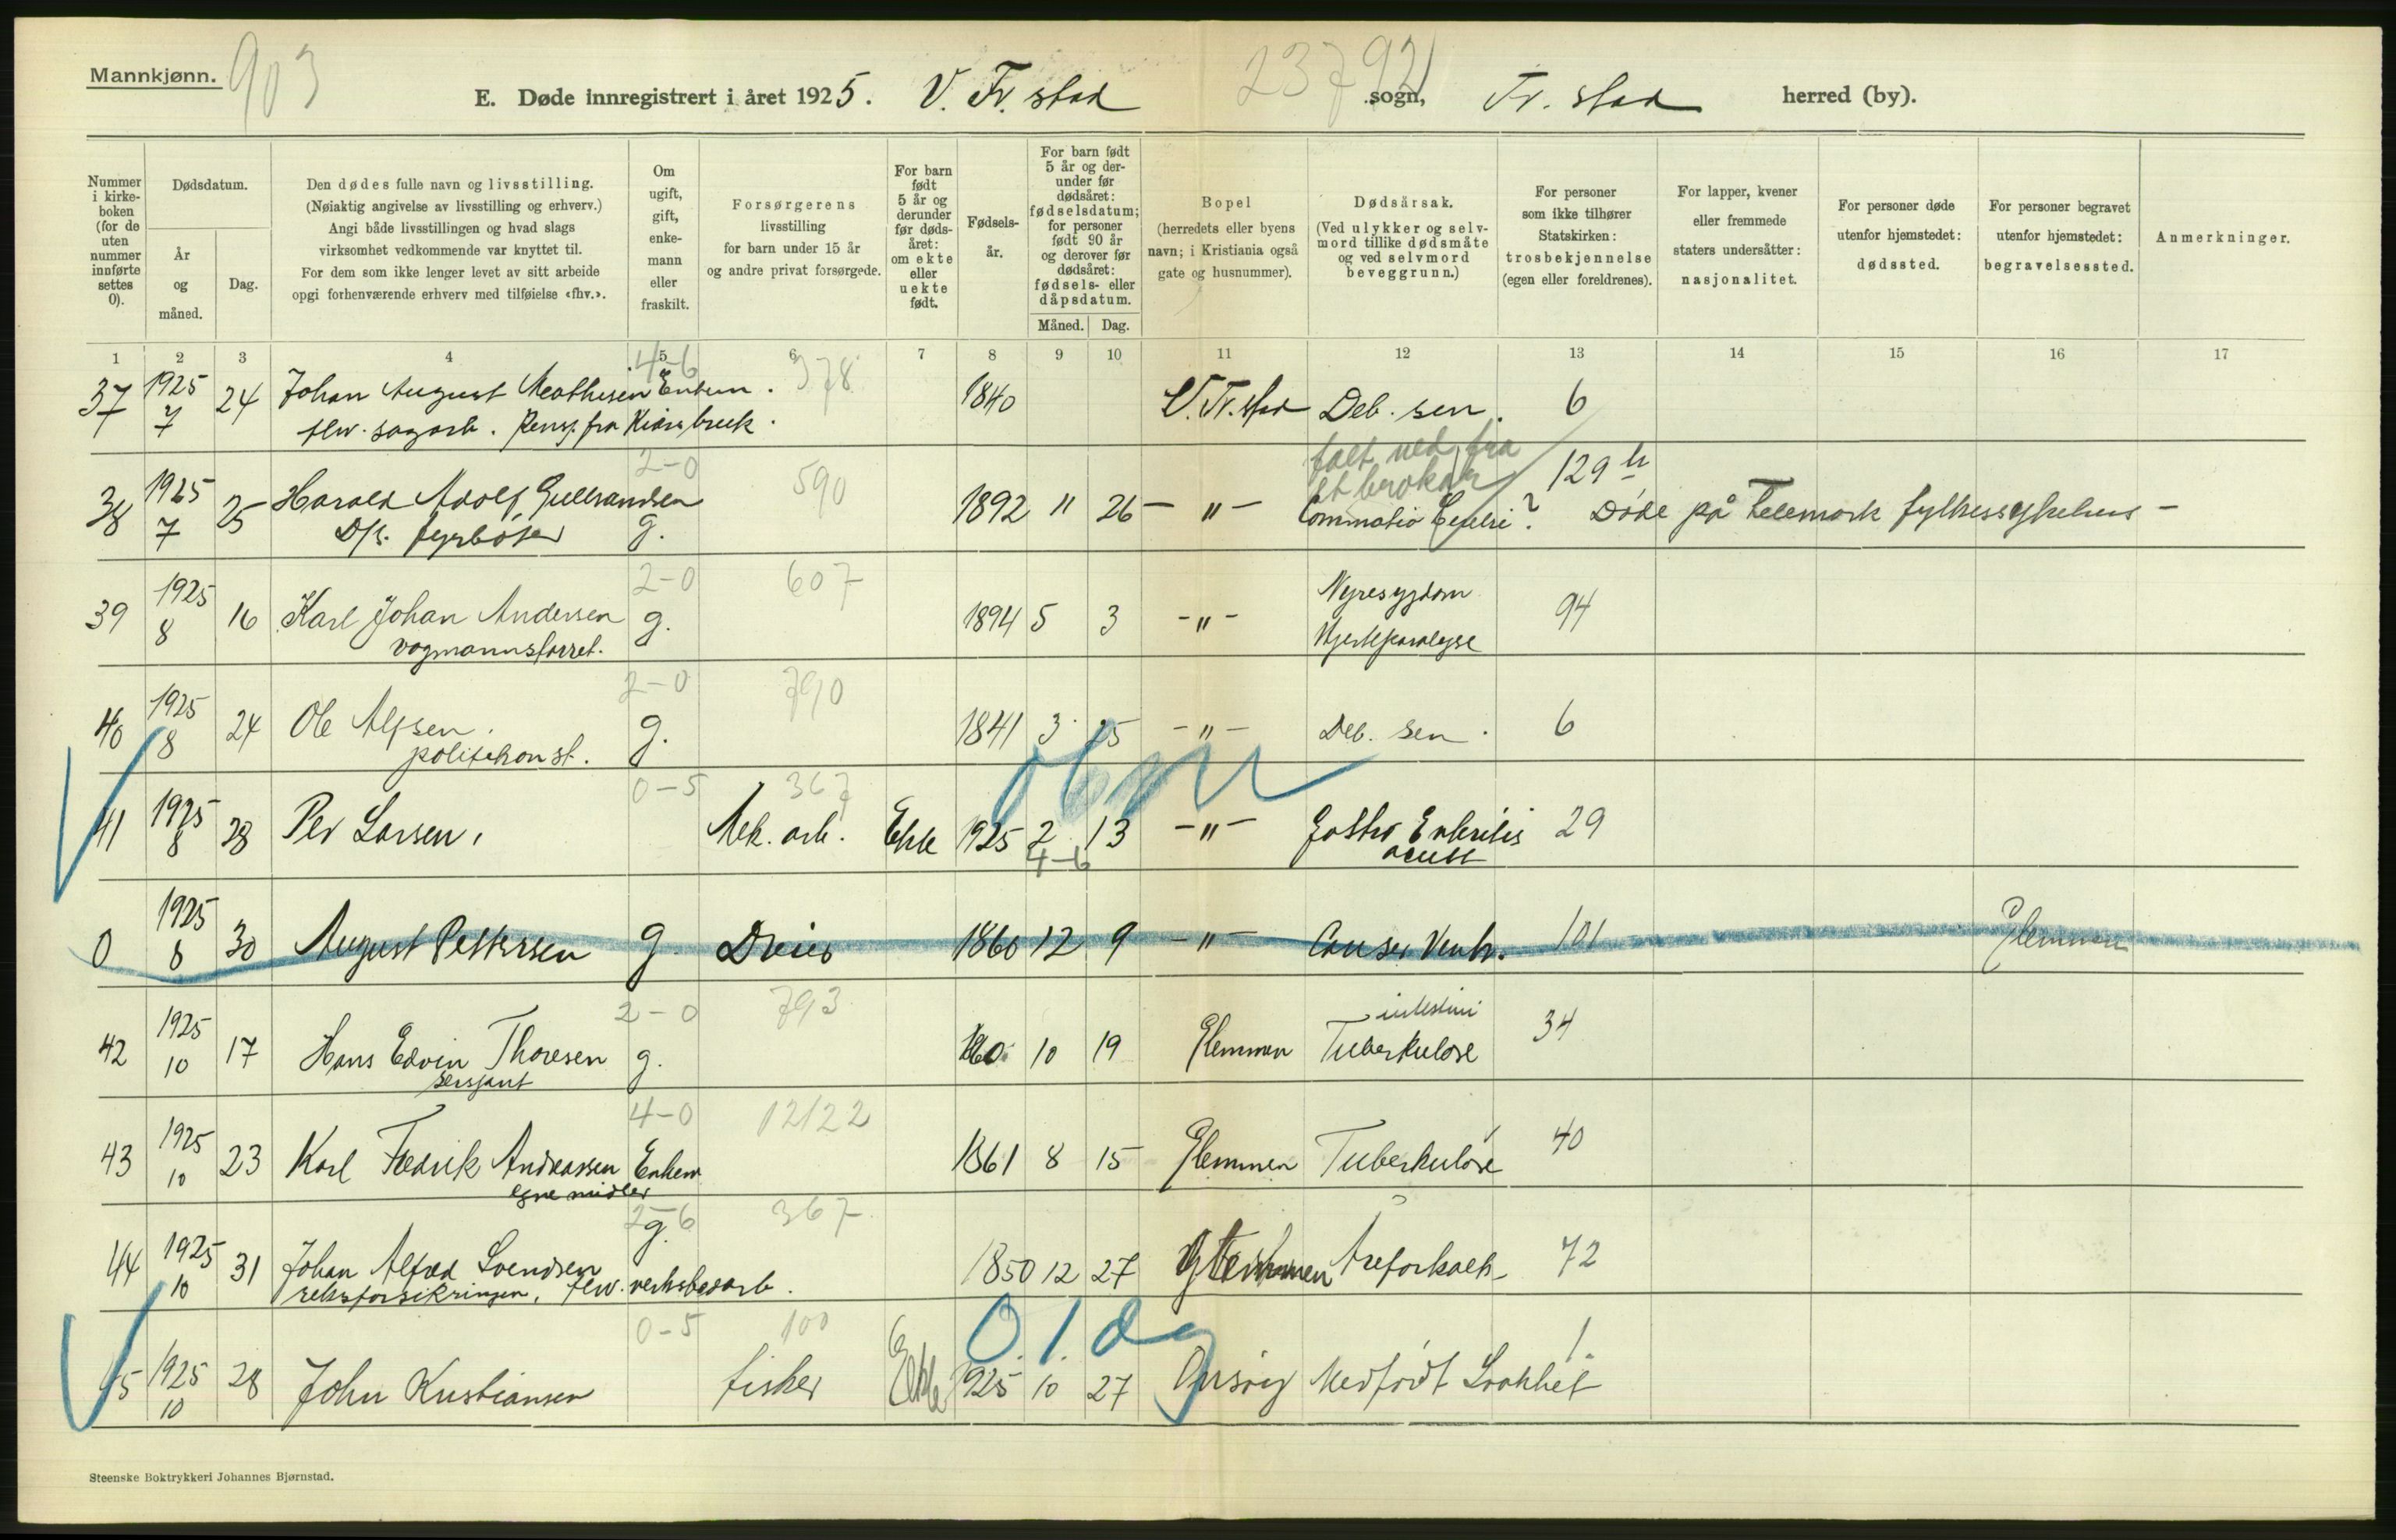 Mannkjønn.
903
E. Døde innregistrert i året 1925. V. Fr. stad 23792 sogn, Fr. stad herred (by).
Nummer i kirke-boken (for de uten nummer innførte settes 0).
Dødsdatum.
År og måned.
Dag.
Den dødes fulle navn og livsstilling.
(Nøiaktig angivelse av livsstilling og erhverv.)
Angi både livsstillingen og hvad slags
virksomhet vedkommende var knyttet til.
For dem som ikke lenger levet av sitt arbeide
opgi forhenværende erhverv med tilføielse «fhv.».
Om ugift, gift, enke-mann eller fraskilt.
Forsørgerens livsstilling for barn under 15 år og andre privat forsørgede.
For barn født 5 år og derunder før døds-året: om ekte eller uekte født.
Fødsels-år.
For barn født 5 år og der-under før dødsåret: fødselsdatum; for personer født 90 år og derover før dødsåret: fødsels- eller dåpsdatum.
Måned. Dag.
Bopel (herredets eller byens navn; i Kristiania også gate og husnummer).
Dødsårsak. (Ved ulykker og selv-mord tillike dødsmåte og ved selvmord beveggrunn.)
For personer som ikke tilhører Statskirken: trosbekjennelse (egen eller foreldrenes).
For lapper, kvener eller fremmede staters undersåtter: nasjonalitet.
For personer døde utenfor hjemstedet: dødssted.
For personer begravet utenfor hjemstedet: begravelsessted.
Anmerkninger.
1 2 3 4 5 6 7 8 9 10 11 12 13 14 15 16 17
4-6 378
37 1925 7 24 Johan August Mathisen Enkem. 1840 V. Fr. stad Deb. sen. 6
fhv. sagarb.
2-0 590 falt ned fra
38 1925 7 25 Harald Adolf Gulbrandsen g. 1892 11 26 - " - Commotio Cerebri? 129 Døde på Telemark fylkessykehus -
D/s. fyrbøter
2-0 607
39 1925 8 16 Karl Johan Andersen g. 1894 5 3 - " - Nyresygdom 94
vognmannsforret. Hjerteparalyse
2-0 790
40 1925 8 24 Ole Alfsen. g. 1841 3 25 - " - Deb. sen. 6
politikonst.
0-5 367
41 1925 8 28 Per Larsen. Mek. arb. Ekte 1925 2 13 - " - Gastro Enteritis 29
acuta
4-6
0 1925 8 30 August Pettersen g. Dreier 1860 12 9 - " - Cancer Ventr. 101 Glemmen
2-0 793 intestini
42 1925 10 17 Hans Edvin Thoresen g. 10 19 Glemmen Tuberkulose 34
sersjant
4-0 12/22
43 1925 10 23 Karl Fredrik Andreassen Enkem 1861 8 15 Glemmen Tuberkulose 40
egne midler
2-6 367
44 1925 10 31 Johan Alfred Svendsen g. 1850 12 27 Glemmen Åreforkalk. 72
fhv. verkstedarb.
0-5 100 0. 1. dg
45 1925 10 28 John Kristiansen fisker Ekte 1925 10 27 Onsøy Medfødt Svakhet 1.
Steenske Boktrykkeri Johannes Bjørnstad.